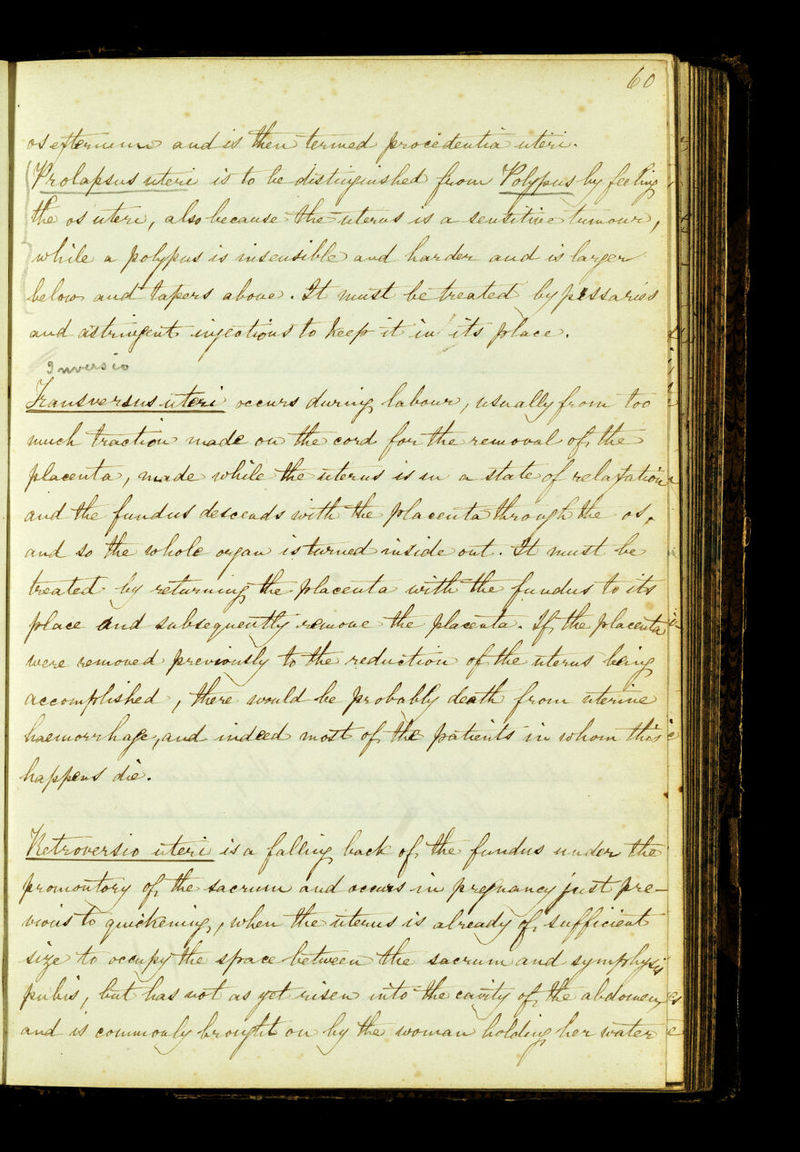 60
os externum and is then termed procedentia uteri.
Prolapsus uteri is to be distinguished from Polypus by feeling
the os uteri, also because the uterus is a sensitive tumour,
while a polypus is insensible and harder and is larger
below and tapers above. It must be treated by pessaries
and astringent injections to keep it in its place.
Inversio
Transversus uteri occurs during labour, usually from too
much traction made on the cord for the removal of the
placenta, made while the uterus is in a state of relaxation
and the fundus descends with the placenta through the os,
and so the whole organ is turned inside out. It must be
treated by returning the placenta with the fundus to its
place and subsequently remove the placenta. If the placenta
were removed previously to the reduction of the uterus being
accomplished, there would be probably death from uterine
haemorrhage, and indeed most of the patients in whom this
happens die.
Retroversio uteri is a falling back of the fundus under the
promontory of the sacrum and occurs in pregnancy just pre-
vious to quickening, when the uterus is already of sufficient
size to occupy the space between the sacrum and symphysis
pubis, but has not as yet risen into the cavity of the abdomen,
and is commonly brought on by the woman holding her water